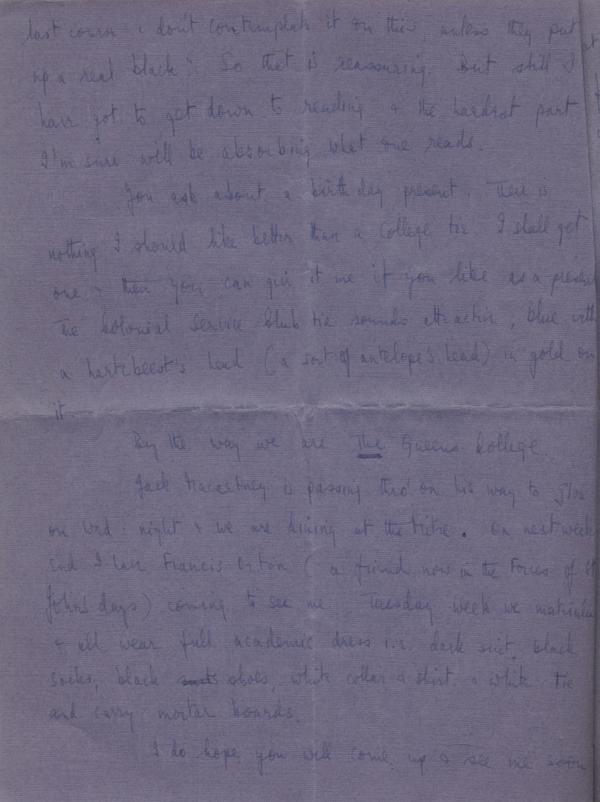 last course & don't contemplate it on this unless they put
up a real black". So that is reassuring. But still I
have got to get down to reading & the hardest part
I'm sure will be absorbing what one reads.
You ask about a birthday present. There is
nothing I should like better than a College tie. I shall get
one & then you can give it me if you like as a present
The Kolonial Service Klub tie sounds attractive, blue with
a hartebeest's head (a sort of antelope's head) in gold on
it.
By the way we are The Queens Kollege.
Jack Macartney is passing thro' on his way to
on Wed: night & we are dining at the Mitre. On next week
end I have Francis (a friend now in the Forces of St
John's days) coming to see me. Tuesday week we matriculate
& all wear full academic dress i.e. dark suit, black
socks, black shoes, white collar & shirt & white tie
and carry mortar boards.
I do hope you will come up & see me soon